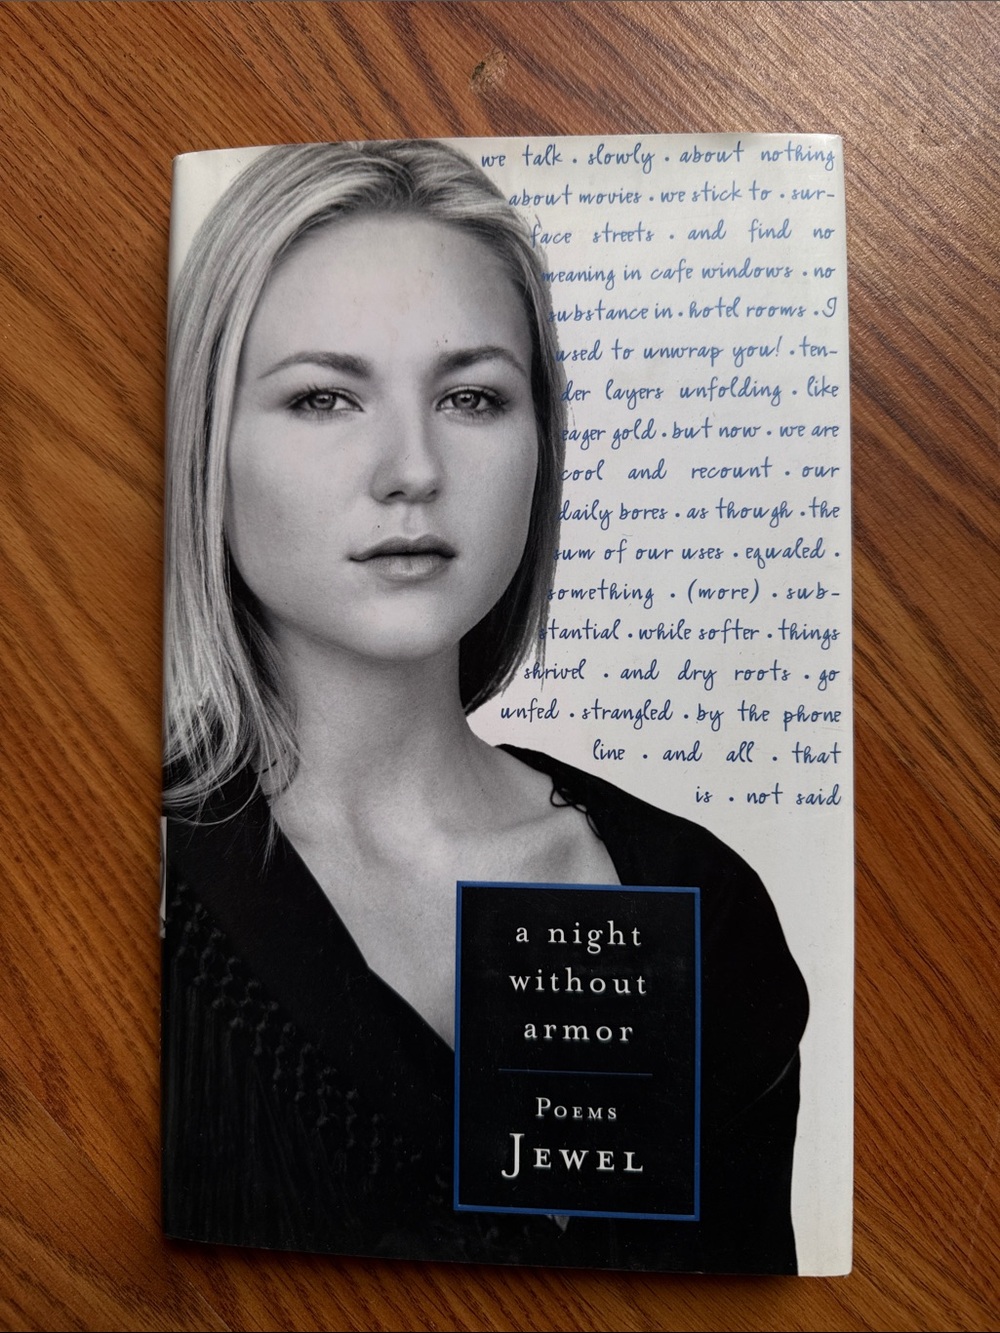 we talk . slowly . about nothing
about movies . we stick to . sur-
face streets . and find no
meaning in cafe windows . no
substance in . hotel rooms . I
used to unwrap you! . ten-
der layers unfolding . like
eager gold . but now . we are
cool and recount . our
daily bores . as though . the
sum of our uses . equaled .
something . (more) . sub-
stantial . while softer . things
shrivel . and dry roots . go
unfed . strangled . by the phone
line . and all . that
is . not said
a night
without
armor
POEMS
JEWEL